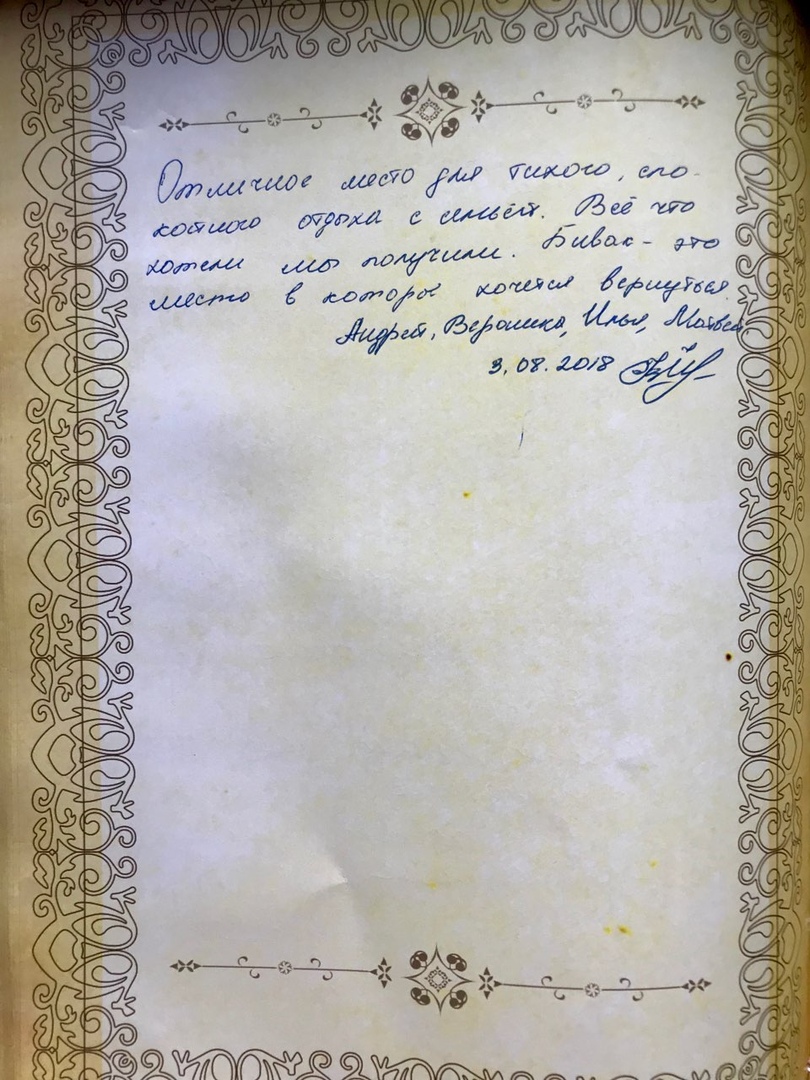 Отличное место для тихого, спо-
койного отдыха с семьёй. Всё что
хотели мы получили. Бивак - это
место в которое хочется вернуться.
Андрей, Вероника, Илья, Матвей
3.08.2018